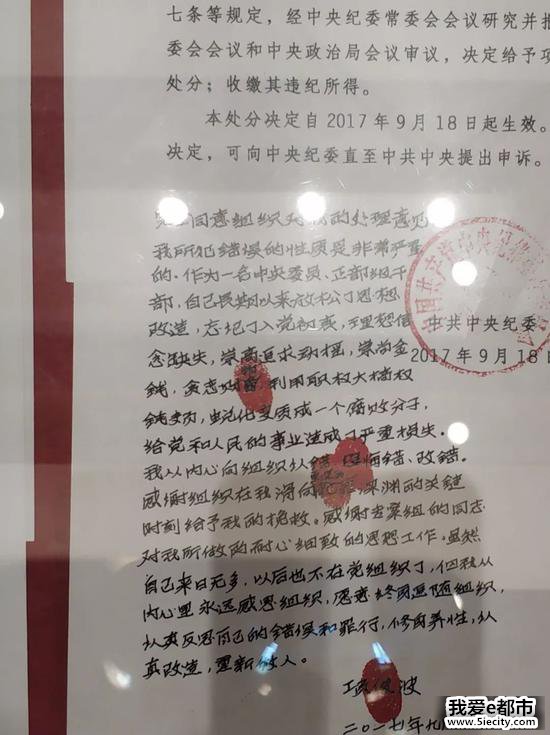 七条等规定，经中央纪委常委会会议研究并报
委会会议和中央政治局会议审议，决定给予项
处分；收缴其违纪所得。
本处分决定自2017年9月18日起生效。
决定，可向中央纪委直至中共中央提出申诉。
同意组织对我的处理意见
我所犯错误的性质是非常严重
的。作为一名中央委员、正部级干
部，自己长期以来放松了思想
改造，忘记了入党初衷，理想信
念缺失，崇高追求动摇，崇尚金
钱，贪恋财富，利用职权大搞权
钱交易，蜕化变质成一个腐败分子，
给党和人民的事业造成了严重损失。
我从内心向组织认错、悔错、改错。
感谢组织在我滑向犯罪深渊的关键
时刻给予我的挽救。感谢专案组的同志
对我所做的耐心细致的思想工作。虽然
自己来日无多，以后也不在党组织了，但我从
内心里永远感恩组织，愿意终身追随组织，
认真反思自己的错误和罪行，修身养性，认
真改造，重新做人。
中共中央纪委
2017年9月18日
项俊波
二〇一七年九
我爱e都市
www.5iecity.com